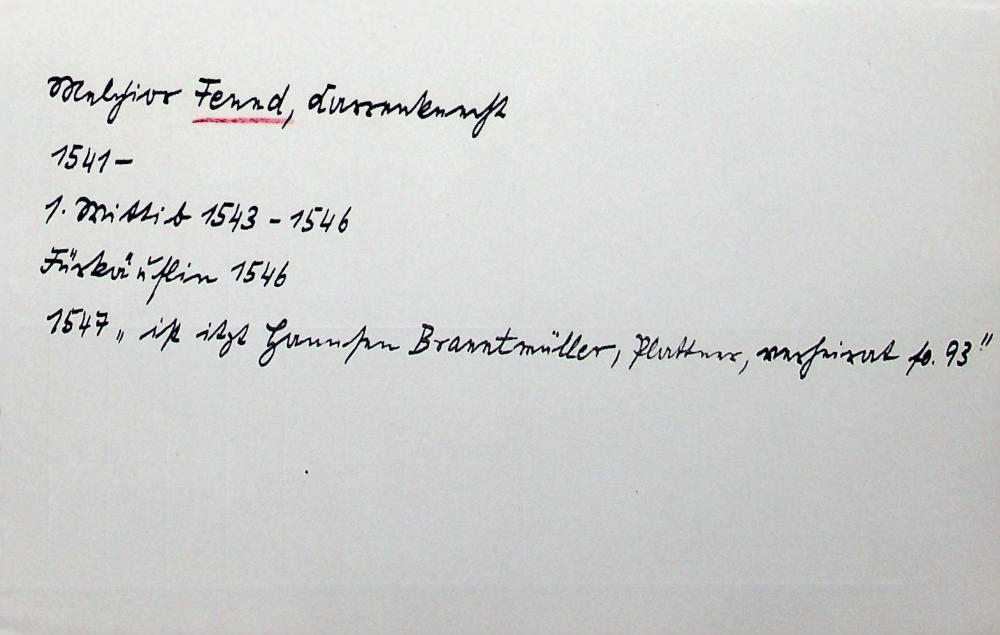 Melchior Fennd, Karrenknecht
1541 –
1. Wittib 1543 – 1546
Fürkäuflin 1546
1547 „ ist itzt Hannsen Branntmüller, Plattner, verheirat fo. 93"